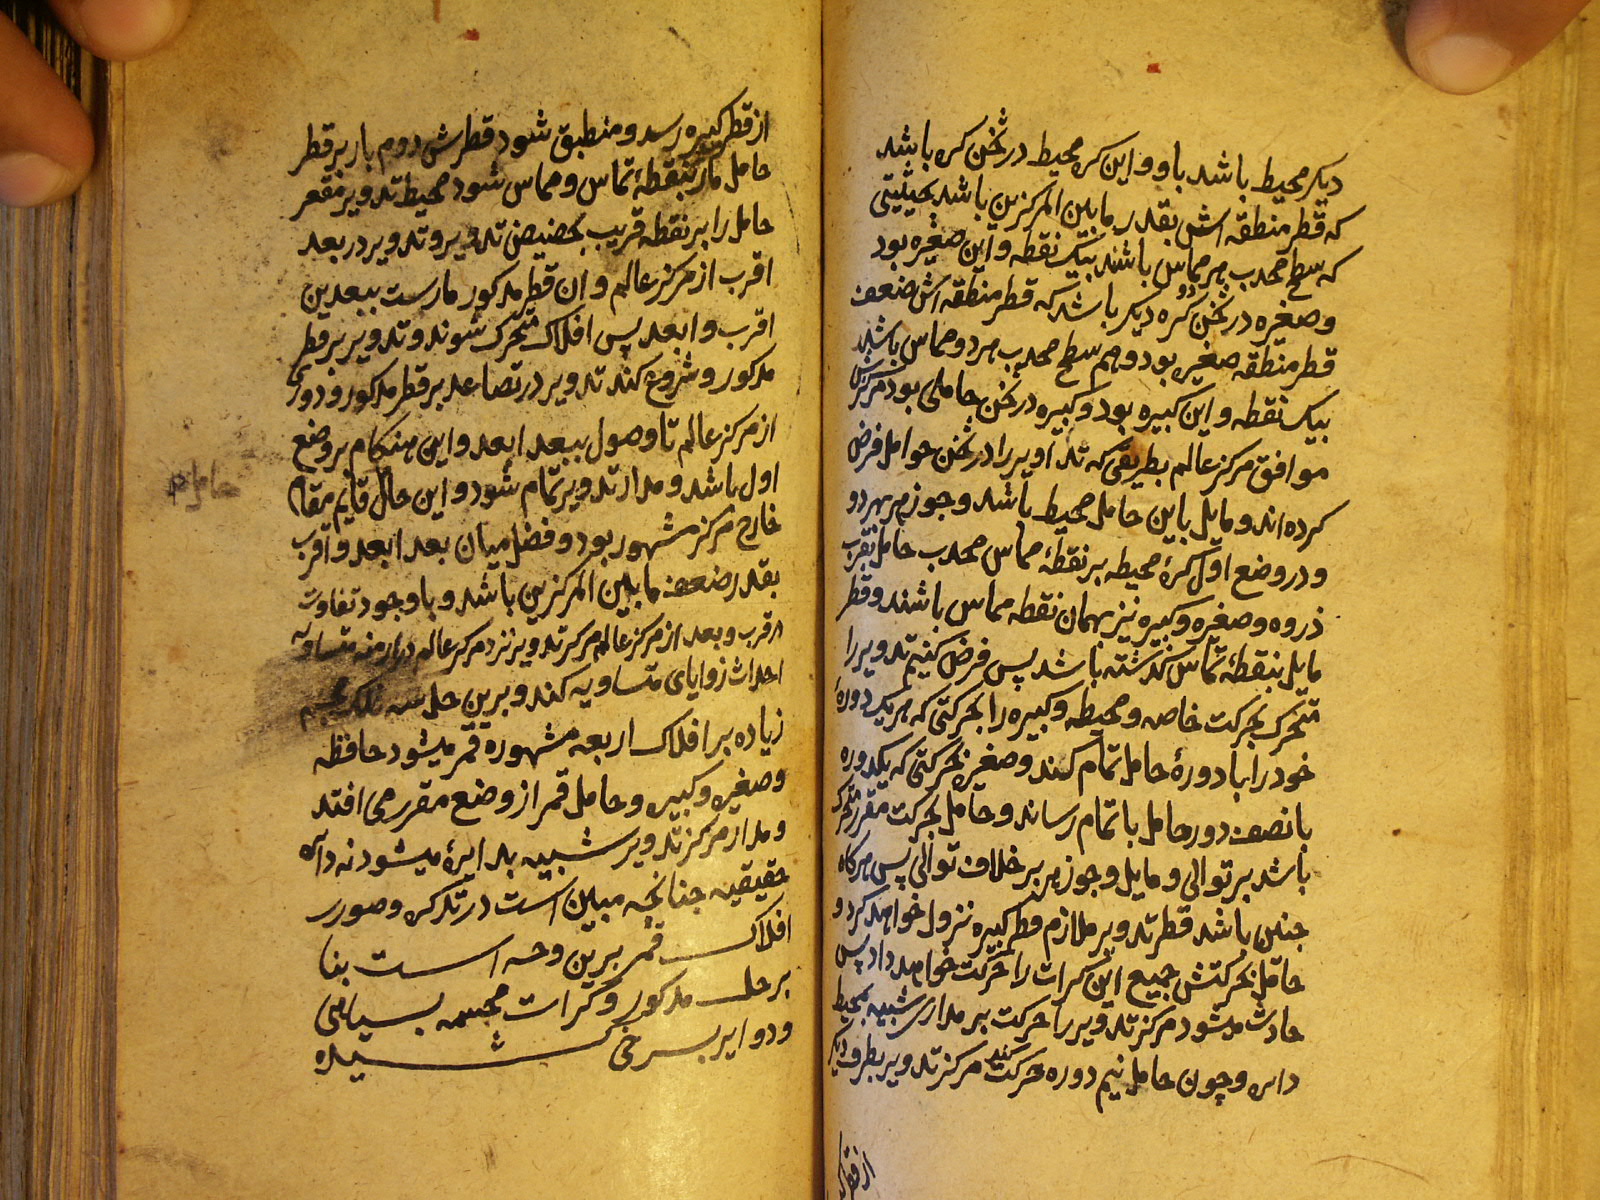 دیکر محیط باشد باو و این کره محیط در ثخن کره باشد
که قطر منطقه اش بقدر مابین المرکزین باشد بحیثیتی
که سطح محدب هر مماس باشند بیک نقطه و این صغیره بود
و صغیره در ثخن کره دیکر باشد که قطر منطقه اش ضعف
قطر منطقه صغیر بود و هم سطح محدب هر دو مماس باشند
بیک نقطه و این کبیره بود و کبیره در ثخن حاملی بود مرکزش
موافق مرکز عالم بطریقی که تداویر را در ثخن حوامل فرض
کرده اند و مایل باین حامل محیط باشد و جوزهر بهر دو
و در وضع اول کرهٔ محیطه بر نقطهٔ مماس محدب حامل بقرب
ذروه و صغیره و کبیره نیز بهمان نقطه مماس باشند و قطر
مایل بنقطهٔ تماس کذشته باشد پس فرض کنیم تدویر را
متحرک بحرکت خاصه و محیطه و کبیره را بحرکتی که هر یک دورهٔ
خود را با دورهٔ حامل تمام کنند و صغیره بحرکتی که یکدوره
با نصف دور حامل باتمام رساند و حامل بحرکت مقرر متحرک
باشد بر توالی و مایل و جوزهر بر خلاف توالی پس هرکاه
چنین باشد قطر تدویر ملازم قطر کبیره نزول خواهد کرد و
حامل بحرکتش جمیع این کرات را حرکت خواهد داد پس
حادث میشود مرکز تدویر را حرکت بر مداری شبیه بمحیط
دایره و چون حامل نیم دوره حرکت کند مرکز تدویر بطرف دیکر
از قطر
از قطر کبیره رسد و منطبق شود قطرش دوم بار بر قطر
حامل مار بنقطهٔ تماس و مماس شود محیط تدویر مقعر
حامل را بر نقطه قریب بحضیض تدویر و تدویر در بعد
اقرب از مرکز عالم و ان قطر مذکور مارست ببعدین
اقرب و ابعد پس افلاک متحرک شوند و تدویر بر قطر
مذکور و شروع کند تدویر در تصاعد بر قطر مذکور و دوری
از مرکز عالم تا وصول ببعد ابعد و این هنکام بر وضع
اول باشد و مدار تدویر تمام شود و این حال قایم مقام
خارج مرکز مشهور بود و فضل میان بعد ابعد و اقرب
بقدر ضعف مابین المرکزین باشد و با وجود تفاوت
قرب و بعد از مرکز عالم مرکز تدویر نزد مرکز عالم در ازمنه متساویه
احداث زوایای متساویه کند و برین حل سه فلک مجسم
زیاده بر افلاک اربعه مشهوره قمر میشود حافظه
و صغیره و کبیره و حامل قمر از وضع مقرر می افتد
و مدار مرکز تدویر شبیه بدایرهٔ میشود نه دایره
حقیقیه چنانچه مبین است در تذکره و صورر
افلاک قمر برین وجه است بنا
بر حل مذکور و کرات مجسمه بسیاهی
و دوایر بسرخی کشیده